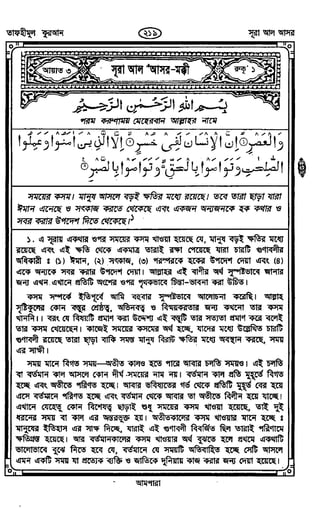 তাফহীমুল কুরআন ২১৯ সূরা আল আসর
আয়াত ৩ সূরা আল 'আসর-মক্কী রুকূ' ১
بِسْمِ اللهِ الرَّحْمٰنِ الرَّحِيْمِ
পরম করুণাময় মেহেরবান আল্লাহর নামে
وَالْعَصْرِ ۝ اِنَّ الْاِنْسَانَ لَفِىْ خُسْرٍ ۝ اِلَّا الَّذِيْنَ اٰمَنُوْا وَعَمِلُوا
الصّٰلِحٰتِ وَتَوَاصَوْا بِالْحَقِّ ۙ وَتَوَاصَوْا بِالصَّبْرِ ۝
সময়ের কসম। মানুষ আসলে বড়ই ক্ষতির মধ্যে রয়েছে। তবে তারা ছাড়া যারা
ঈমান এনেছে ও সৎকাজ করতে থেকেছে এবং একজন অন্যজনকে হক কথার ও
সবর করার উপদেশ দিতে থেকেছে।১
১. এ সূরায় একথার ওপর সময়ের কসম খাওয়া হয়েছে যে, মানুষ বড়ই ক্ষতির মধ্যে
রয়েছে এবং এই ক্ষতি থেকে একমাত্র তারাই রক্ষা পেয়েছে যারা চারটি গুণাবলীর
অধিকারী ঃ (১) ঈমান, (২) সৎকাজ, (৩) পরস্পরকে হকের উপদেশ দেয়া এবং (৪)
একে অন্যকে সবর করার উপদেশ দেয়া। আল্লাহর এই বাণীর অর্থ সুস্পষ্টভাবে জানার
জন্য এখন এখানে প্রতিটি অংশের ওপর পৃথকভাবে চিন্তা-ভাবনা করা উচিত।
কসম সম্পর্কে ইতিপূর্বে আমি বহুবার সুস্পষ্টভাবে আলোচনা করেছি। আল্লাহ
সৃষ্টিকুলের কোন বস্তুর শ্রেষ্ঠত্ব, অভিনবত্ব ও বিস্ময়করতার জন্য কখনো তার কসম
খাননি। বরং যে বিষয়টি প্রমাণ করা উদ্দেশ্য এই বস্তুটি তার সত্যতা প্রমাণ করে বলেই
তার কসম খেয়েছেন। কাজেই সময়ের কসমের অর্থ হচ্ছে, যাদের মধ্যে উল্লেখিত চারটি
গুণাবলী রয়েছে তারা ছাড়া বাকি সমস্ত মানুষ বিরাট ক্ষতির মধ্যে অবস্থান করছে, সময়
এর সাক্ষী।
সময় মানে বিগত সময়—অতীত কালও হতে পারে আবার চলতি সময়ও। এই চলতি
বা বর্তমান কাল আসলে কোন দীর্ঘ সময়ের নাম নয়। বর্তমান কাল প্রতি মুহূর্তে বিগত
হচ্ছে এবং অতীতে পরিণত হচ্ছে। আবার ভবিষ্যতের গর্ভ থেকে প্রতিটি মুহূর্ত বের হয়ে
এসে বর্তমানে পরিণত হচ্ছে এবং বর্তমান থেকে আবার তা অতীতে বিলীন হয়ে যাচ্ছে।
এখানে যেহেতু কোন বিশেষত্ব ছাড়াই শুধু সময়ের কসম খাওয়া হয়েছে, তাই দুই
ধরনের সময় বা কাল এর অন্তরভুক্ত হয়। অতীতকালের কসম খাওয়ার মানে হচ্ছে ঃ
মানুষের ইতিহাস এর সাক্ষ দিচ্ছে, যারাই এই গুণাবলী বিবর্জিত ছিল তারাই পরিণামে
ক্ষতিগ্রস্ত হয়েছে। আর বর্তমানকালের কসম খাওয়ার অর্থ বুঝতে হলে প্রথমে একথাটি
ভালোভাবে বুঝে নিতে হবে যে, বর্তমানে যে সময়টি অতিবাহিত হচ্ছে সেটি আসলে
এমন একটি সময় যা প্রত্যেক ব্যক্তি ও জাতিকে দুনিয়ায় কাজ করার জন্য দেয়া হয়েছে।
আমপারা